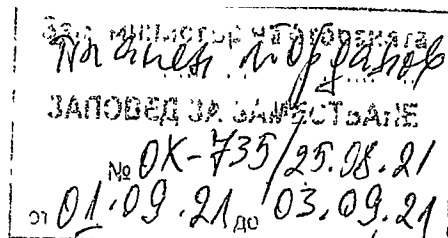 Зам. министър на отбраната
Пламен Йорданов
ЗАПОВЕД ЗА ЗАМЕСТВАНЕ
№ ОХ-735/25.08.21
от 01.09.21 до 03.09.21